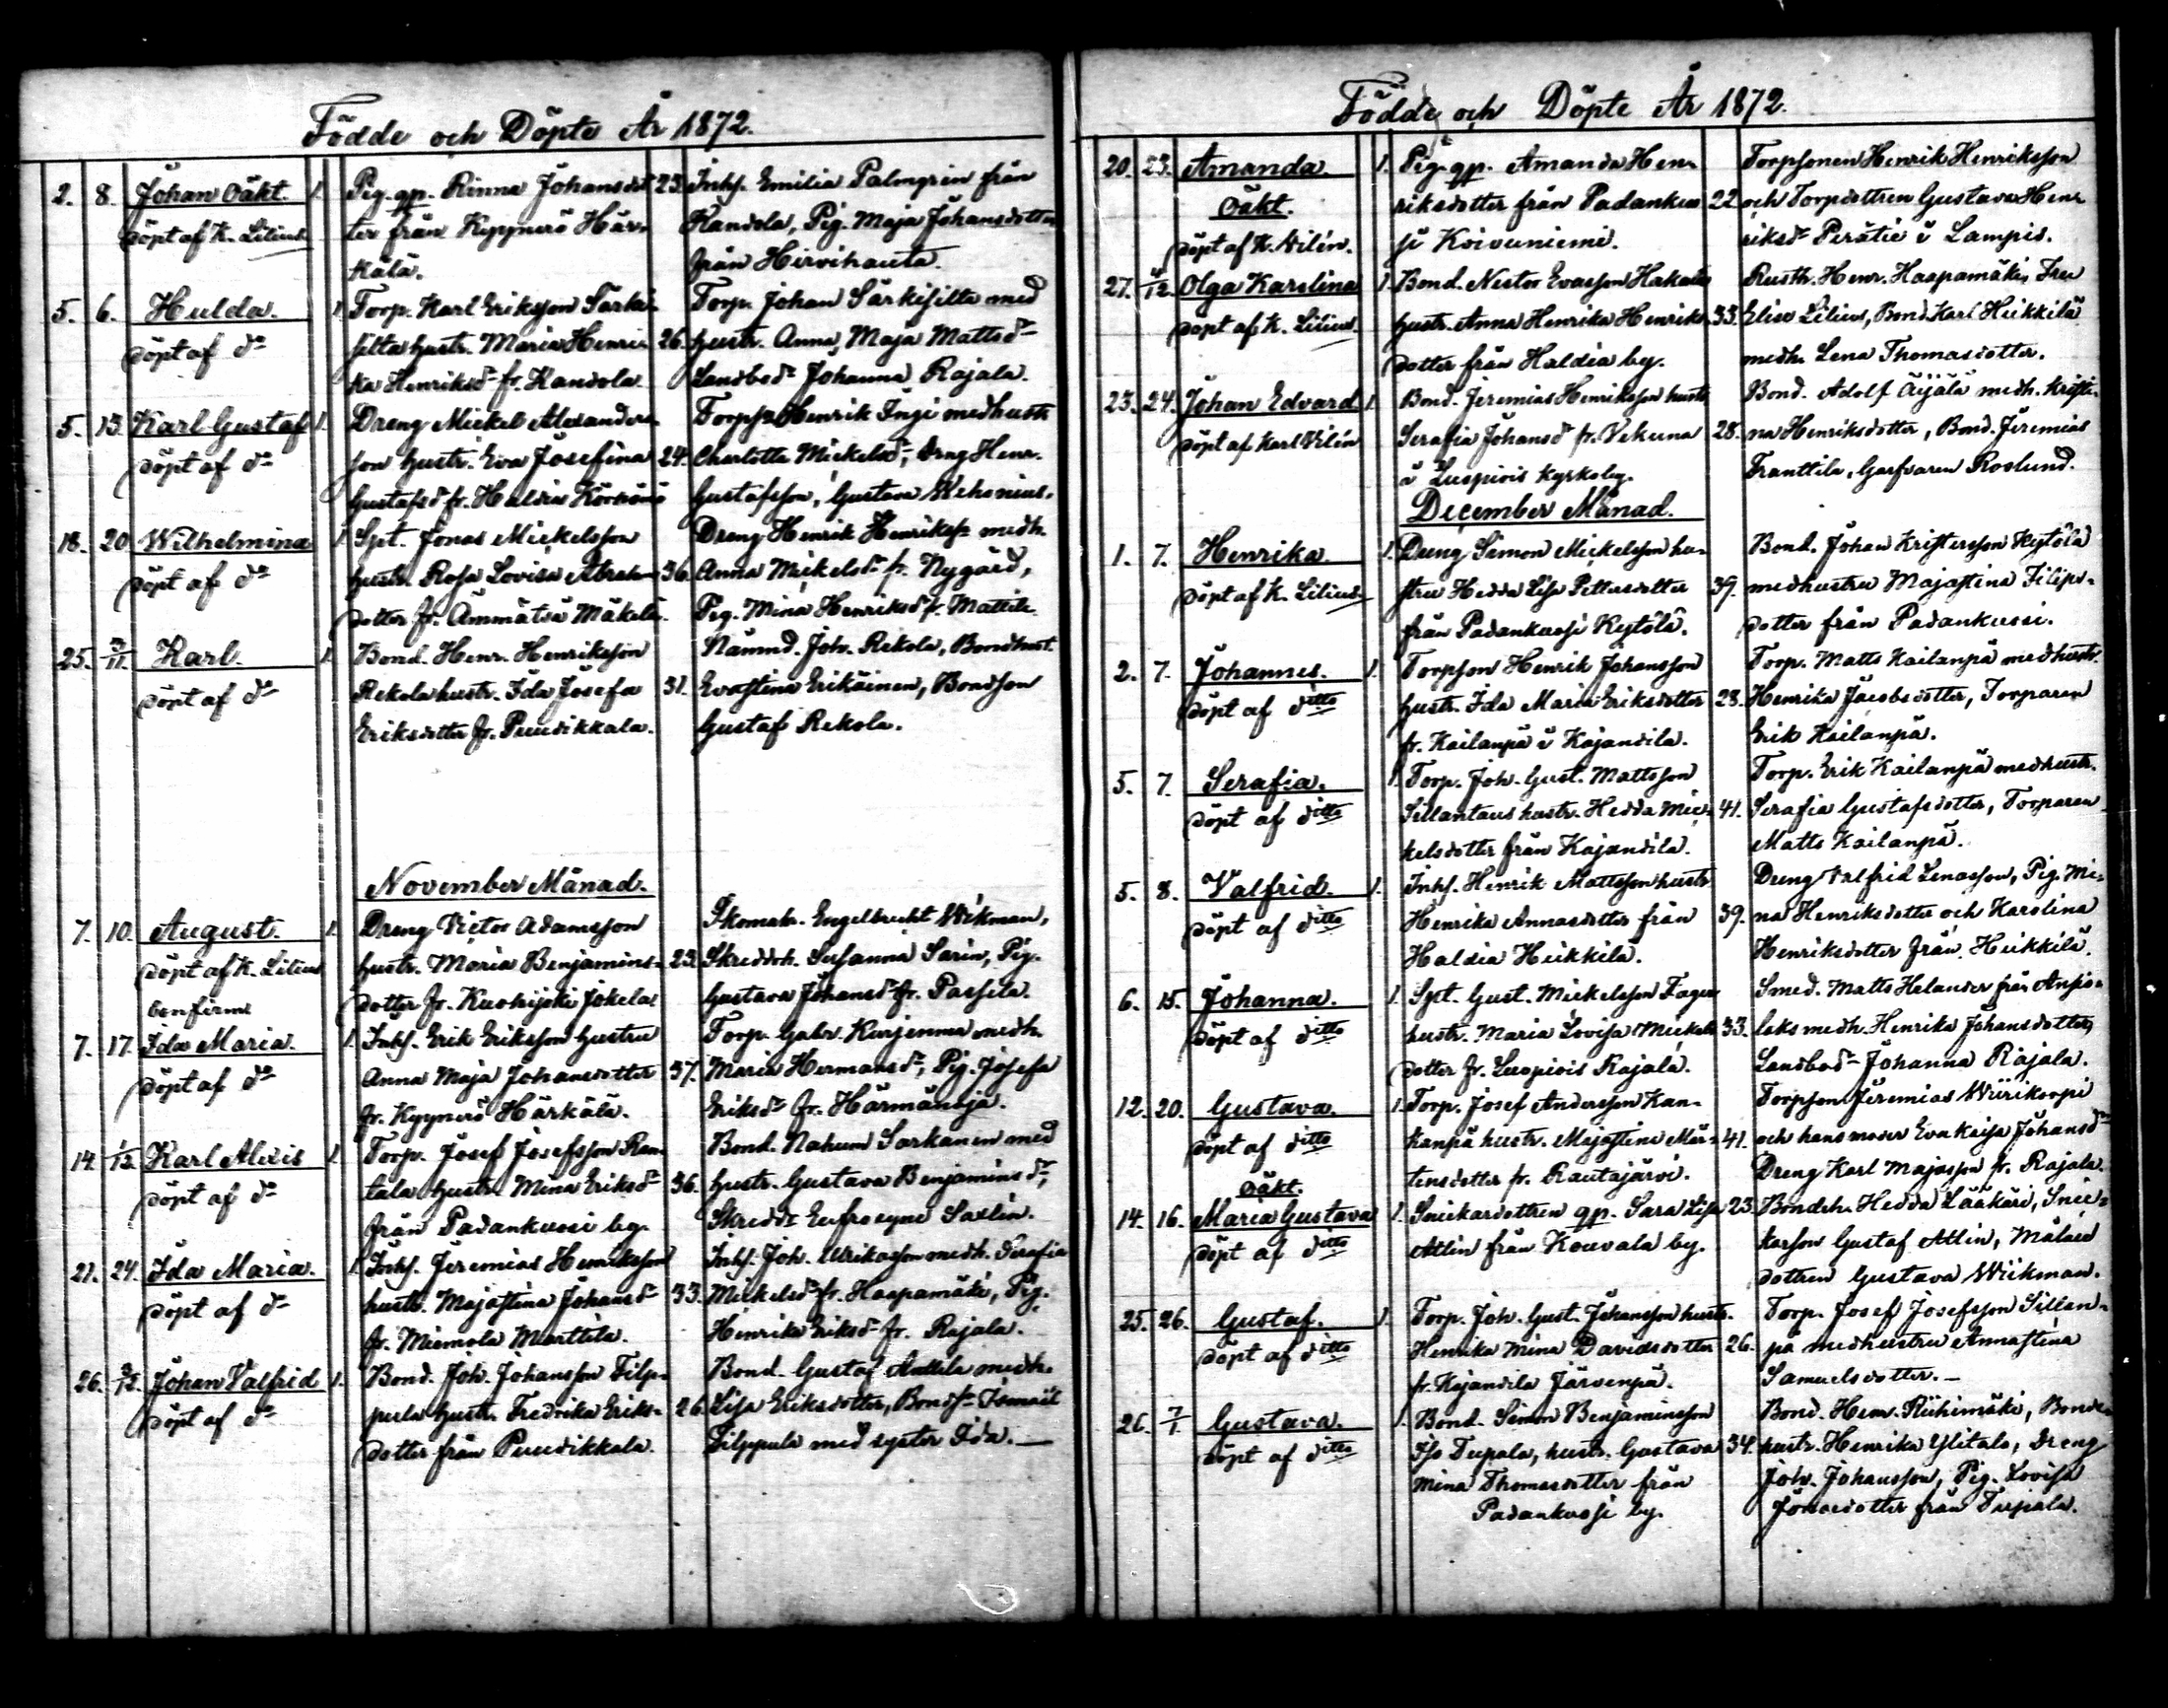 Födde och Döpte År 1872.
2. 8. Johan oäkt. 1. Pig. qp. Rinna Johansdot 23. Inhs. Emilia Palmgrén från
döpt af K. Lilius ter från Kyynerö Här- Kandola, Pig. Maja Johansdotter
kälä. från Hirvihauta.
5. 6. Hulda. 1. Torp. Karl Eriksson Särki- Torp. Johan Särkisilta med
döpt af do silta hustr. Maria Henri- 26. hustr. Anna, Maja Mattsdr
ka Henriksdr fr. Kandola Landbodr Johanna Rajala.
5. 13. Karl Gustaf 1. Dreng Mickel Alexanders- Torpsn Henrik Ingi med hustr.
döpt af do son hustr. Eva Josefina 24. Charlotta Mickelsdr, Dreng Henr.
Gustafsdr fr. Haldia Gustafsson, Gustava
18. 20. Wilhelmina 1. Spt. Jonas Mickelsson Dreng Henrik Henrikss. medh.
döpt af do hustr. Rosa Lovisa Abrahams 36. Anna Mickelsdr fr. Nygård,
dotter fr. Ämmätsä Mäkelä. Pig. Mina Henriksdr fr. Mattila.
25. 3/11. Karl. 1. Bond. Henr. Henriksson Nämnd. Joh. Rekola, Bondhust.
döpt af do Rekola hustr. Ida Josefa 31. Evastina Erikäinen, Bondson
Eriksdotter fr. Puudikkala. Gustaf Rekola.
November Månad.
7. 10. August. 1. Dreng Victor Adamsson Skomak. Engelbrecht Wikman,
döpt af K. Lilius hustr. Maria Benjamins- 23. Skreddoh. Susanna Sarin, Pig.
konfirm dotter fr. Kuohijoki Jokela Gustava Johansdr fr. Passila.
7. 17. Ida Maria. 1. Inhs. Erik Eriksson hustru Torp. Gabr. Kurjenma medh.
döpt af do Anna Maja Johansdotter 37. Maria Hermansdr, Pig. Josefa
fr. Kyynerö Härkälä. Eriksdr fr. Härmänoja.
14. 1/12. Karl Alexis 1. Torp. Josef Josefsson Ran- Bond. Nahum Sarkanen med
döpt af do tala hustr. Mina Eriksdr 36. hustr. Gustava Benjaminsdr,
från Padankoski by. Skreddr Eufrosyne Saxlin.
21. 24. Ida Maria. 1. Inhs. Jeremias Henriksson Inhs. Joh. Ulrikasson medh. Serafia
döpt af do hustr. Majastina Johansdr 33. Mickelsdr fr. Haapamäki, Pig.
fr. Miemola Marttila. Henrika Eriksdr fr. Rajala.
26. 3/12. Johan Valfrid 1. Bond. Joh. Johansson Filp- Bond. Gustaf Anttila medh.
döpt af do pula hustr. Fredrika Eriks- 26. Lisa Eriksdotter, Bondsn Ismaël
dotter från Puudikkala. Filppula med syster Ida.
Födde och Döpte År 1872.
20. 23. Amanda 1. Pig. qp. Amanda Hen- Torpsonen Henrik Henriksson
Oäkt. riksdotter från Padankos 22. och Torpdottren Gustava Hen-
döpt af K. Vilén. ki Koivuniemi. riksdr Perätie i Lampis.
27. 1/12. Olga Karolina 1. Bond. Nestor Evasson Hakala Rusth. Henr. Haapamäki, Fru
döpt af K. Lilius. hustr. Anna Henrika Henriks 33. Elise Lilius, Bond. Karl Heikkilä
dotter från Haldia by. medh. Lena Thomasdotter.
23. 24. Johan Edvard 1. Bond. Jeremias Henriksson hustr. Bond. Adolf Äijälä medh. Kristi-
döpt af Karl Vilén Serafia Johansdr fr. Vekuna 28. na Henriksdotter, Bond. Jeremias
i Luopiois kyrkoby. Franttila, Garfvaren Roslund.
December Månad.
1. 7. Henrika. 1. Dreng Simon Mickelsson hu- Bond. Johan Kristersson Kytölä
döpt af K. Lilius stru Hedda Lisa Pettersdotter 39. med hustru Majastina Filips-
från Padankoski Kytölä. dotter från Padankoski.
2. 7. Johannes. 1. Torpson Henrik Johansson Torp. Matts Kailanpä med hustr.
döpt af ditto hustr. Ida Maria Eriksdotter 28. Henrika Jacobsdotter, Torparen
fr. Kailanpä i Kajandila. Erik Kailanpä.
5. 7. Serafia. 1. Torp. Joh. Gust. Mattsson Torp. Erik Kailanpä med hustr.
döpt af ditto Sillantaus hustr. Hedda Mic- 41. Serafia Gustafsdotter, Torparen
kelsdotter från Kajandila. Matts Kailanpä.
5. 8. Valfrid. 1. Inhs. Henrik Mattsson hustr. Dreng Valfrid Lenasson, Pig. Mi-
döpt af ditto Henrika Annasdotter från 39. na Henriksdotter och Karolina
Haldia Heikkilä. Henriksdotter från Heikkilä.
6. 15. Johanna. 1. Spt. Gust. Mickelsson Fager Smed. Matts Helander från Anjio-
döpt af ditto hustr. Maria Lovisa Mickels 33. laks medh. Henrika Johansdotter,
dotter fr. Luopiois Rajala. Landbodr Johanna Rajala.
12. 20. Gustava. 1. Torp. Josef Andersson Kan- Torpson Jeremias Wiirikorpi
döpt af ditto kanpä hustr. Majastina Mår- 41. och hans moder Eva Kaisa Johansdr
tensdotter fr. Rautajärvi. Dreng Karl Majasson fr. Rajala.
oäkt.
14. 16. Maria Gustava 1. Snickardottren qp. Sara Lisa 23. Bondeh. Hedda Lääkäri, Snic-
döpt af ditto Atlin från Kouvala by. karson Gustaf Atlin, Målare
dottren Gustava Wiikman.
25. 26. Gustaf. 1. Torp. Joh. Gust. Johansson hustr. Torp. Josef Josefsson Sillan-
döpt af ditto Henrika Mina Davidsdotter 26. pä med hustru Annastina
fr. Kajandila Järvenpä. Samuelsdotter.
26. 7/1 Gustava. 1. Bond. Simon Benjaminsson Bond. Henr. Riihimäki, Bonde-
döpt af ditto Iso Teepala, hustr. Gustava 34. hustr. Henrika Ylitalo, Dreng
Mina Thomasdotter från Joh. Johansson, Pig. Lovisa
Padankoski by. Jonasdotter från Teepala.